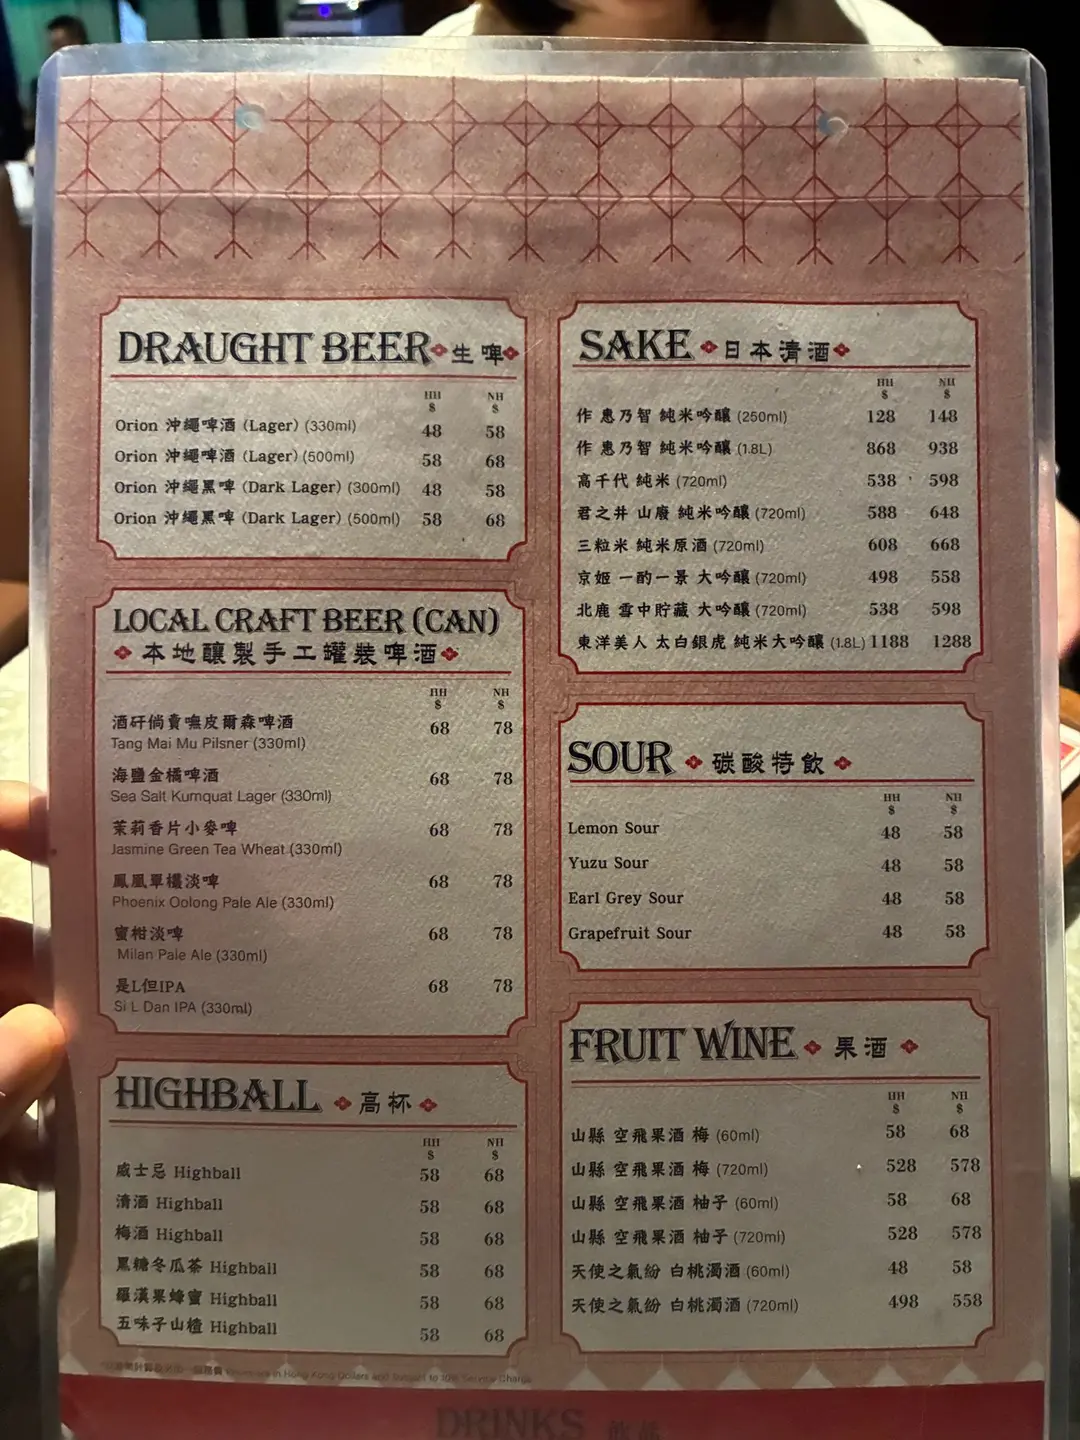 DRAUGHT BEER 生啤
HH $ NH $
Orion 沖繩啤酒 (Lager) (330ml) 48 58
Orion 沖繩啤酒 (Lager) (500ml) 58 68
Orion 沖繩黑啤 (Dark Lager) (300ml) 48 58
Orion 沖繩黑啤 (Dark Lager) (500ml) 58 68
LOCAL CRAFT BEER (CAN)
本地釀製手工罐裝啤酒
HH $ NH $
酒矸倘賣嘸皮爾森啤酒 68 78
Tang Mai Mu Pilsner (330ml)
海鹽金橘啤酒 68 78
Sea Salt Kumquat Lager (330ml)
茉莉香片小麥啤 68 78
Jasmine Green Tea Wheat (330ml)
鳳凰單欉淡啤 68 78
Phoenix Oolong Pale Ale (330ml)
蜜柑淡啤 68 78
Milan Pale Ale (330ml)
是L但IPA 68 78
Si L Dan IPA (330ml)
HIGHBALL 高杯
HH $ NH $
威士忌 Highball 58 68
清酒 Highball 58 68
梅酒 Highball 58 68
黑糖冬瓜茶 Highball 58 68
羅漢果蜂蜜 Highball 58 68
五味子山楂 Highball 58 68
SAKE 日本清酒
HH $ NH $
作 惠乃智 純米吟釀 (250ml) 128 148
作 惠乃智 純米吟釀 (1.8L) 868 938
高千代 純米 (720ml) 538 598
君之井 山廢 純米吟釀 (720ml) 588 648
三粒米 純米原酒 (720ml) 608 668
京姬 一酌一景 大吟釀 (720ml) 498 558
北鹿 雪中貯藏 大吟釀 (720ml) 538 598
東洋美人 太白銀虎 純米大吟釀 (1.8L) 1188 1288
SOUR 碳酸特飲
HH $ NH $
Lemon Sour 48 58
Yuzu Sour 48 58
Earl Grey Sour 48 58
Grapefruit Sour 48 58
FRUIT WINE 果酒
HH $ NH $
山縣 空飛果酒 梅 (60ml) 58 68
山縣 空飛果酒 梅 (720ml) 528 578
山縣 空飛果酒 柚子 (60ml) 58 68
山縣 空飛果酒 柚子 (720ml) 528 578
天使之氣紛 白桃濁酒 (60ml) 48 58
天使之氣紛 白桃濁酒 (720ml) 498 558
in Hong Kong Dollars and Subject to 10% Service Charge
DRINKS 飲品